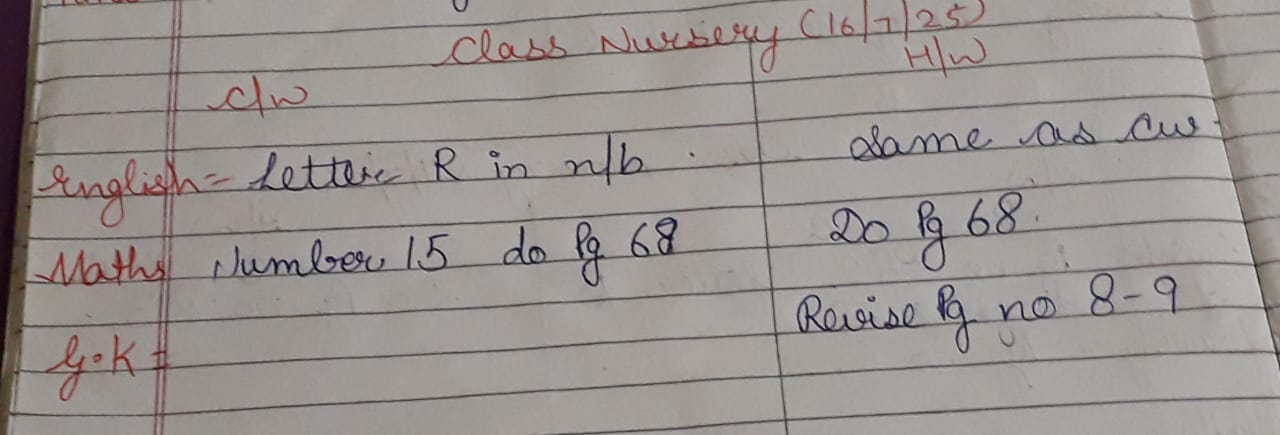 Class Nursery (16/7/25)
C/W H/W
English= Letter R in n/b. Same as cw.
Maths Number 15 do Pg 68 Do Pg 68.
G.K = Revise Pg no 8-9